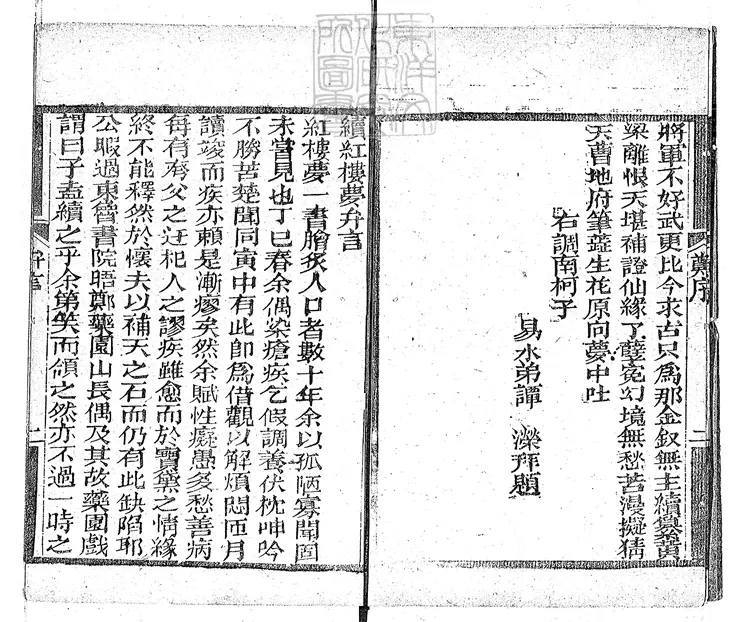 將軍不好武更比今求古只為那金釵無主續纂黃
粱離恨天堪補證仙緣了孽寃幻境無愁苦漫擬猜
天曹地府筆蕋生花原向夢中吐
右調南柯子
易水弟譚 濼拜題
鄭序
二
續紅樓夢弁言
紅樓夢一書膾炙人口者數十年余以孤陋寡聞固
未嘗見也丁巳春余偶染瘡疾乞假調養伏枕呻吟
不勝苦楚聞同寅中有此即為借觀以解煩悶匝月
讀竣而疾亦賴是漸瘳矣然余賦性癡愚多愁善病
每有夯父之迂杞人之謬疾雖愈而於寶黛之情緣
終不能釋然於懷夫以補天之石而仍有此缺陷耶
公暇過東魯書院晤鄭藥園山長偶及其故藥園戲
謂曰子盍續之乎余第笑而頷之然亦不過一時之
弁言
二